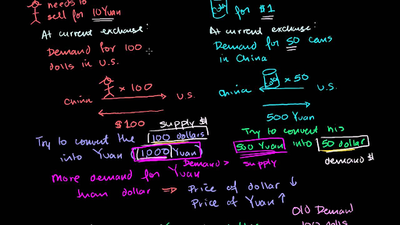 needs to
sell for 10 Yuan
At current exchange:
Demand for 100
dolls in U.S.
x 100
China
U.S.
$100
for $1
At current exchange:
Demand for 50 cans
in China
x 50
China
U.S.
500 Yuan
Try to convert the
supply $
100 dollars
into Yuan
1000 Yuan
Demand > supply
Try to convert his
500 Yuan into 50 dollar
demand $
More demand for Yuan
than dollar ⇒ Price of dollar ↓
Price of Yuan ↑
Old Demand